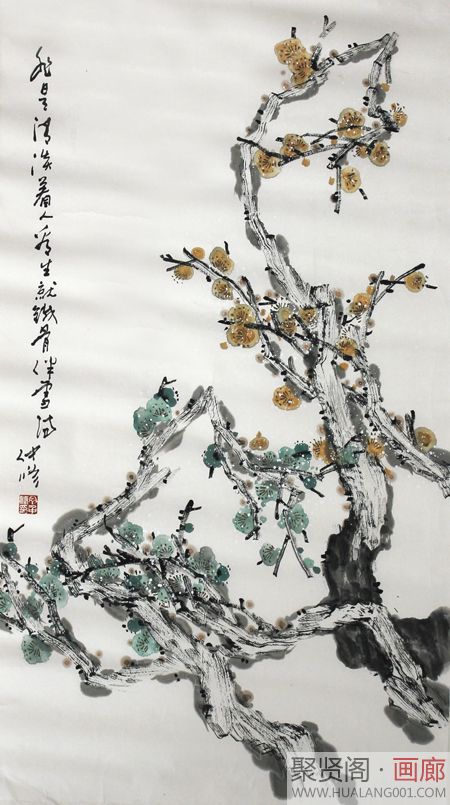 是清淡著人生就鐵骨伴雪
聚贤阁·画廊
WWW.HUALANG001.COM